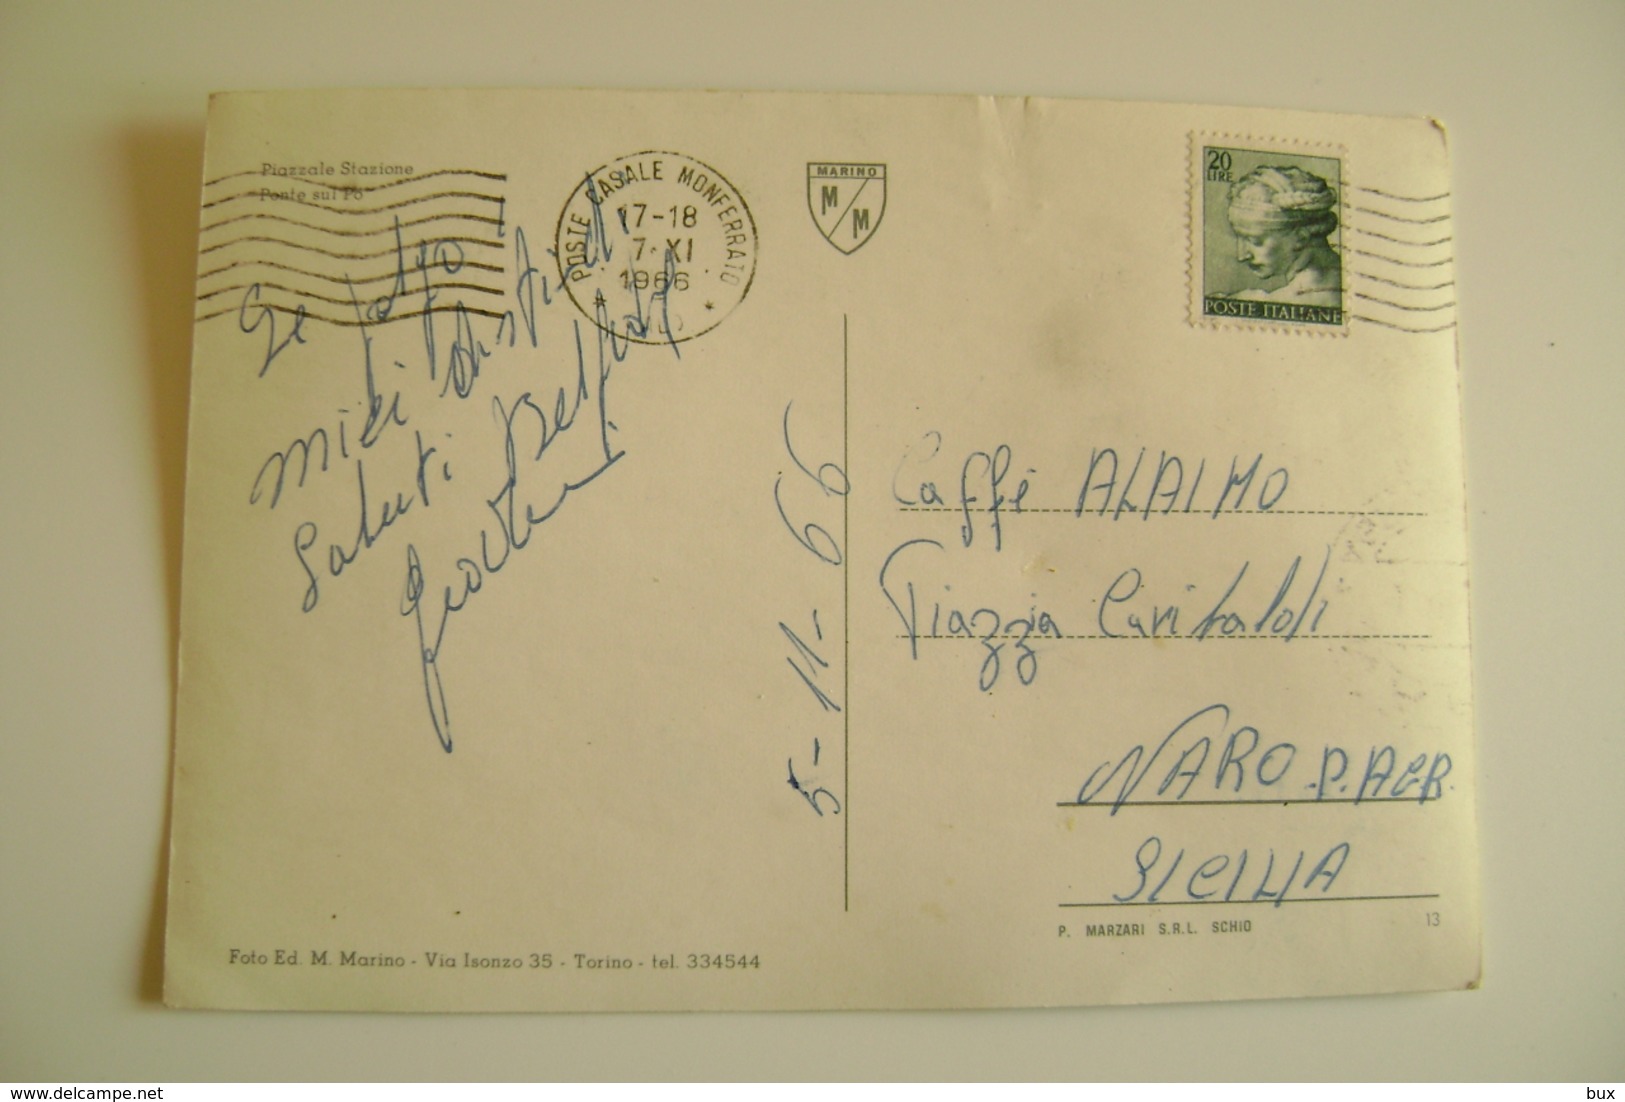 Piazzale Stazione
Ponte sul Po
POSTE CASALE MONFERRATO
17-18
7·XI
1966
MARINO
M M
20
LIRE
POSTE ITALIANE
miei
Saluti
5-11-66
Caffé ALAIMO
Piazza Garibaldi
NARO P. AGR.
SICILIA
P. MARZARI S.R.L. SCHIO
13
Foto Ed. M. Marino - Via Isonzo 35 - Torino - tel. 334544
bux